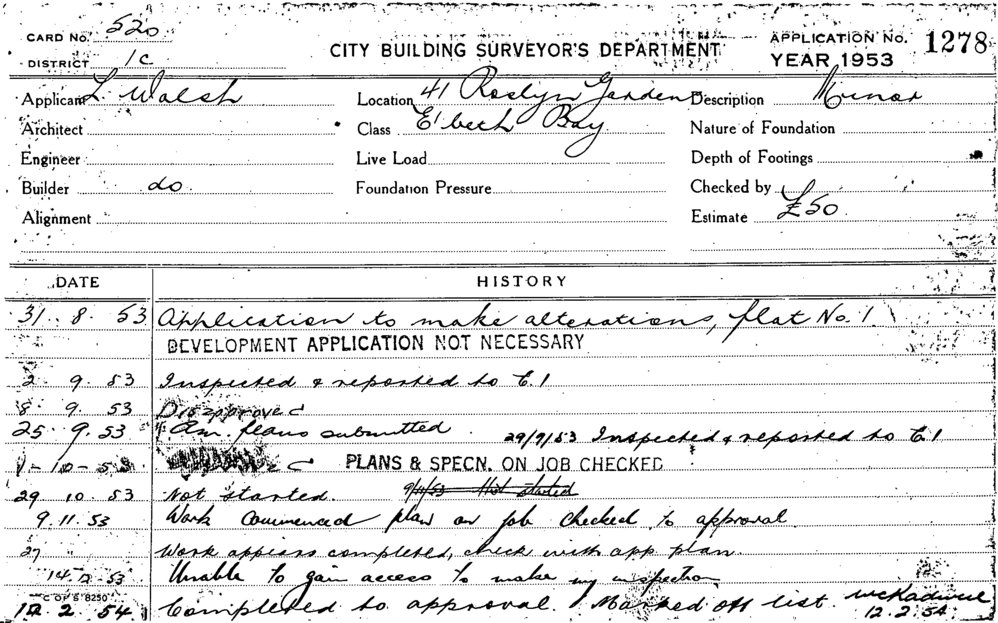 CARD No. 520
DISTRICT 1c
CITY BUILDING SURVEYOR'S DEPARTMENT
APPLICATION No. 1278
YEAR 1953
Applicant L. Walsh Location 41 Roslyn Gardens Description Minor
Architect Class E'beth Bay Nature of Foundation
Engineer Live Load Depth of Footings
Builder do Foundation Pressure Checked by
Alignment Estimate £50
DATE HISTORY
31 . 8 . 53 Application to make alterations, flat No. 1.
DEVELOPMENT APPLICATION NOT NECESSARY
2 . 9 . 53 Inspected & reported to E.1
8 . 9 . 53 Disapproved
25 . 9 . 53 Am. plans submitted. 29/9/53 Inspected & reported to E.1
1-10-53 PLANS & SPECN. ON JOB CHECKED
29 . 10 . 53 Not started. 9/11/53 Not started
9 . 11 . 53 Work commenced plan on job checked to approval
27 " Work appears completed, check with app. plan
14.12.53 Unable to gain access to make my inspection
C OF S 8250
12 . 2 . 54 Completed to approval. Marked off list.
12.2.54